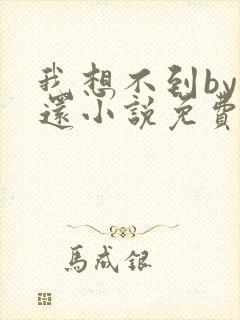 我想不到by
還小説免費
馬成銀